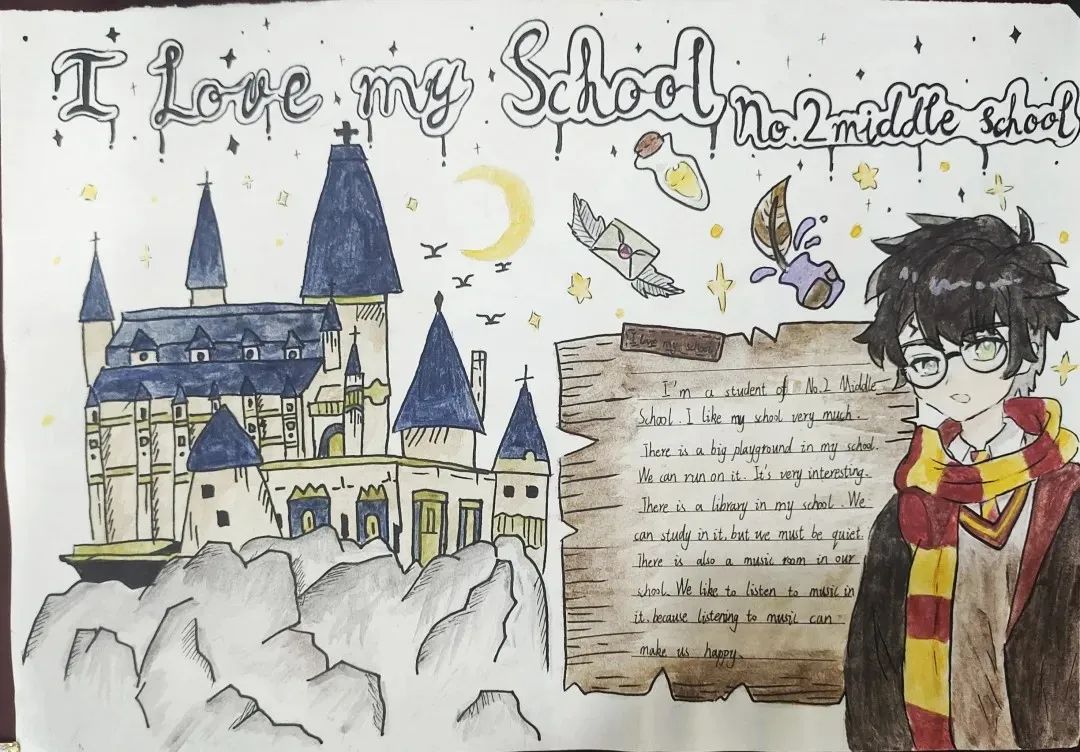 I Love my School
No.2 middle school
I love my school
I'm a student of No.2 Middle
School. I like my school very much.
There is a big playground in my school.
We can run on it. It's very interesting.
There is a library in my school. We
can study in it. but we must be quiet.
There is also a music room in our
shool. We like to listen to music in
it. because listening to music can
make us happy.